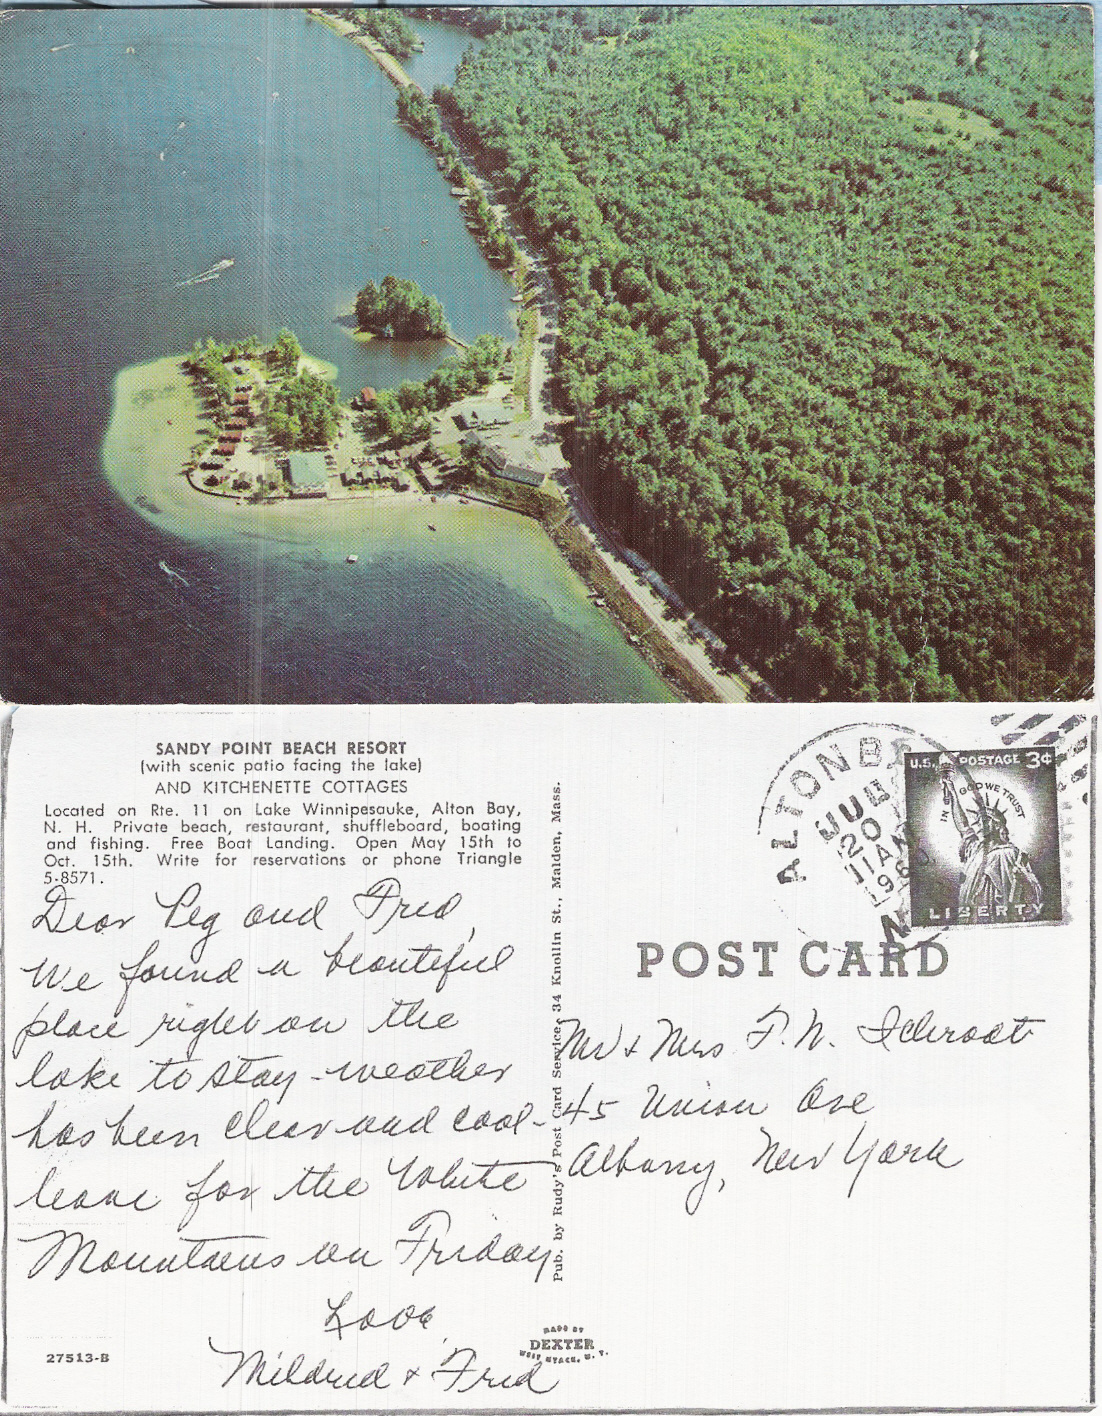 SANDY POINT BEACH RESORT
(with scenic patio facing the lake)
AND KITCHENETTE COTTAGES
Located on Rte. 11 on Lake Winnipesauke, Alton Bay,
N. H. Private beach, restaurant, shuffleboard, boating
and fishing. Free Boat Landing. Open May 15th to
Oct. 15th. Write for reservations or phone Triangle
5-8571.
Dear Peg and Fred,
We found a beautiful
place right on the
lake to stay - weather
has been clear and cool -
leave for the White
Mountains on Friday
Love,
Mildred & Fred
27513-B
Pub. by Rudy's Post Card Service, 34 Knollin St., Malden, Mass.
MADE BY
DEXTER
WEST NYACK, N. Y.
ALTON BAY
20
11 AM
1960
N
U.S. POSTAGE 3¢
IN GOD WE TRUST
LIBERTY
POST CARD
Mr & Mrs F. N. Schrodt
45 Union Ave
Albany, New York